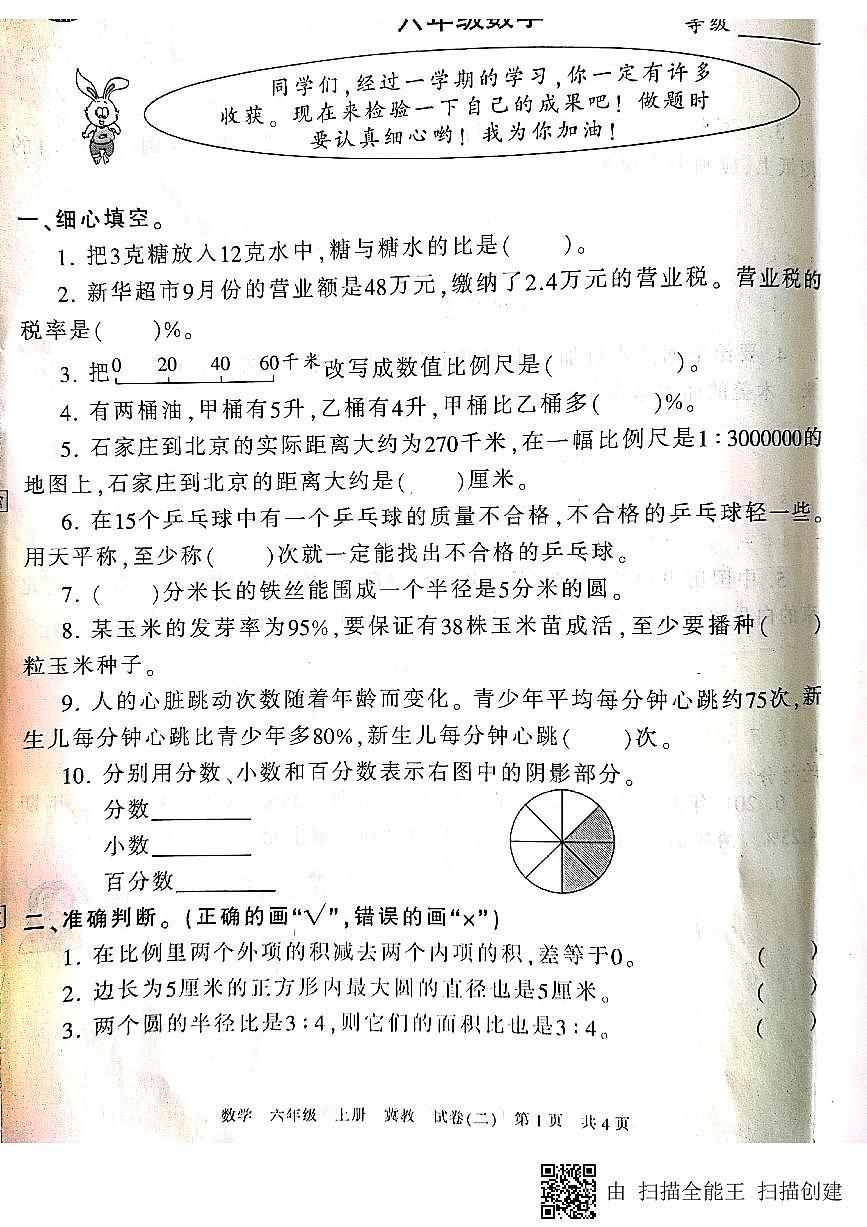 六年级数学
等级
同学们,经过一学期的学习,你一定有许多
收获。现在来检验一下自己的成果吧!做题时
要认真细心哟!我为你加油!
一、细心填空。
1. 把3克糖放入12克水中,糖与糖水的比是(  )。
2. 新华超市9月份的营业额是48万元,缴纳了2.4万元的营业税。营业税的
税率是(  )%。
3. 把0 20 40 60千米改写成数值比例尺是(  )。
4. 有两桶油,甲桶有5升,乙桶有4升,甲桶比乙桶多(  )%。
5. 石家庄到北京的实际距离大约为270千米,在一幅比例尺是1:3000000的
地图上,石家庄到北京的距离大约是(  )厘米。
6. 在15个乒乓球中有一个乒乓球的质量不合格,不合格的乒乓球轻一些。
用天平称,至少称(  )次就一定能找出不合格的乒乓球。
7. (  )分米长的铁丝能围成一个半径是5分米的圆。
8. 某玉米的发芽率为95%,要保证有38株玉米苗成活,至少要播种(  )
粒玉米种子。
9. 人的心脏跳动次数随着年龄而变化。青少年平均每分钟心跳约75次,新
生儿每分钟心跳比青少年多80%,新生儿每分钟心跳(  )次。
10. 分别用分数、小数和百分数表示右图中的阴影部分。
分数
小数
百分数
二、准确判断。(正确的画“√”,错误的画“×”)
1. 在比例里两个外项的积减去两个内项的积,差等于0。 (  )
2. 边长为5厘米的正方形内最大圆的直径也是5厘米。 (  )
3. 两个圆的半径比是3:4,则它们的面积比也是3:4。 (  )
数学 六年级 上册 冀教 试卷(二) 第1页 共4页
由 扫描全能王 扫描创建